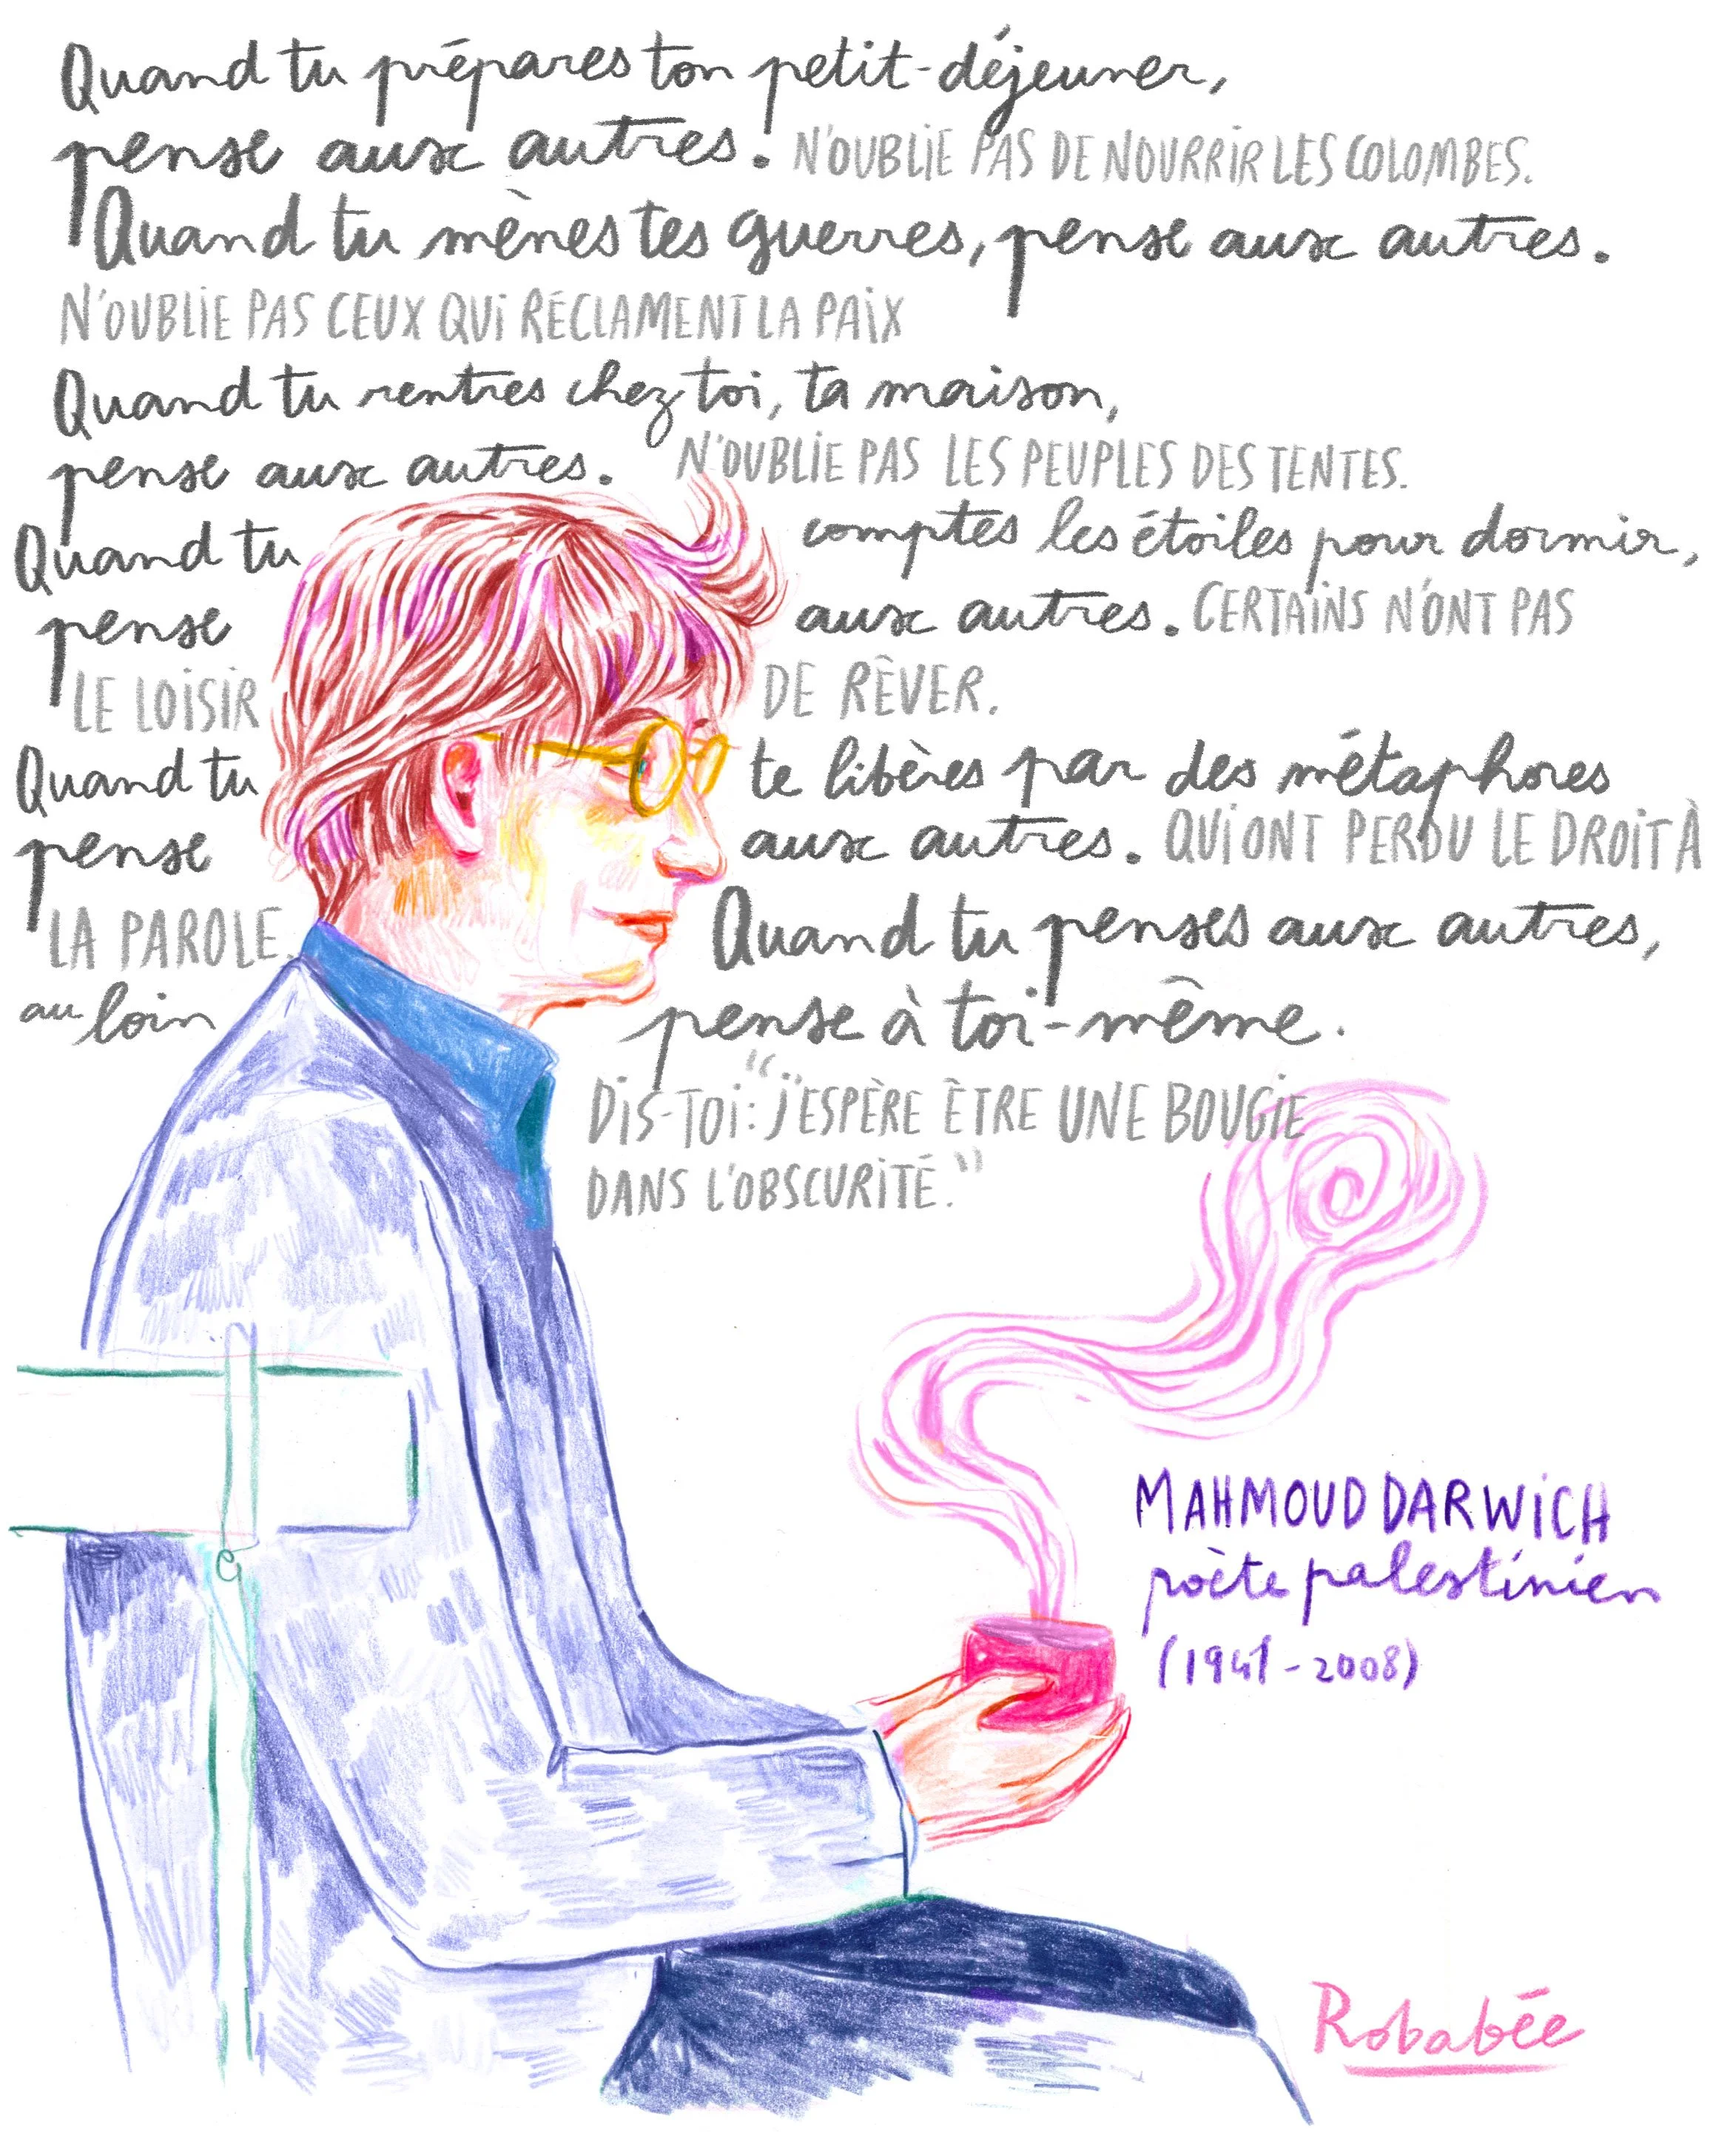 Quand tu prépares ton petit-déjeuner,
pense aux autres. N'OUBLIE PAS DE NOURRIR LES COLOMBES.
Quand tu mènes tes guerres, pense aux autres.
N'OUBLIE PAS CEUX QUI RÉCLAMENT LA PAIX
Quand tu rentres chez toi, ta maison,
pense aux autres. N'OUBLIE PAS LES PEUPLES DES TENTES.
Quand tu comptes les étoiles pour dormir,
pense aux autres. CERTAINS N'ONT PAS
LE LOISIR DE RÊVER.
Quand tu te libères par des métaphores
pense aux autres. QUI ONT PERDU LE DROIT À
LA PAROLE. Quand tu penses aux autres,
au loin pense à toi-même.
DIS-TOI: "J'ESPÈRE ÊTRE UNE BOUGIE
DANS L'OBSCURITÉ."
MAHMOUD DARWICH
poète palestinien
(1941-2008)
Robabée